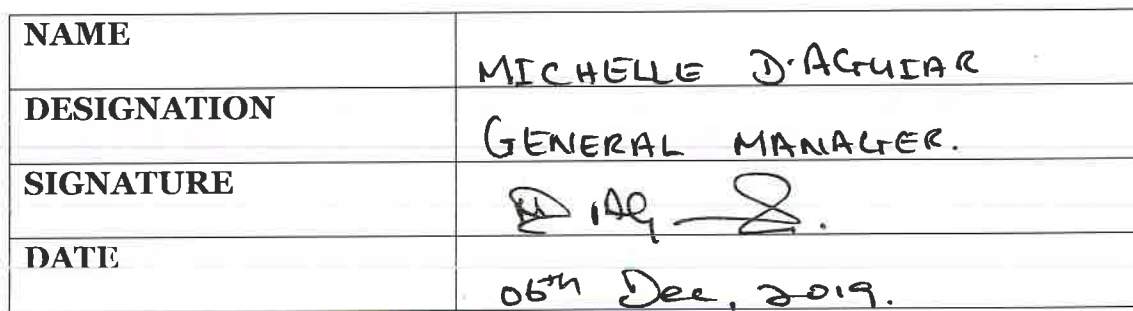 NAME
MICHELLE D'AGUIAR
DESIGNATION
GENERAL MANAGER.
SIGNATURE
DATE
06th Dec, 2019.